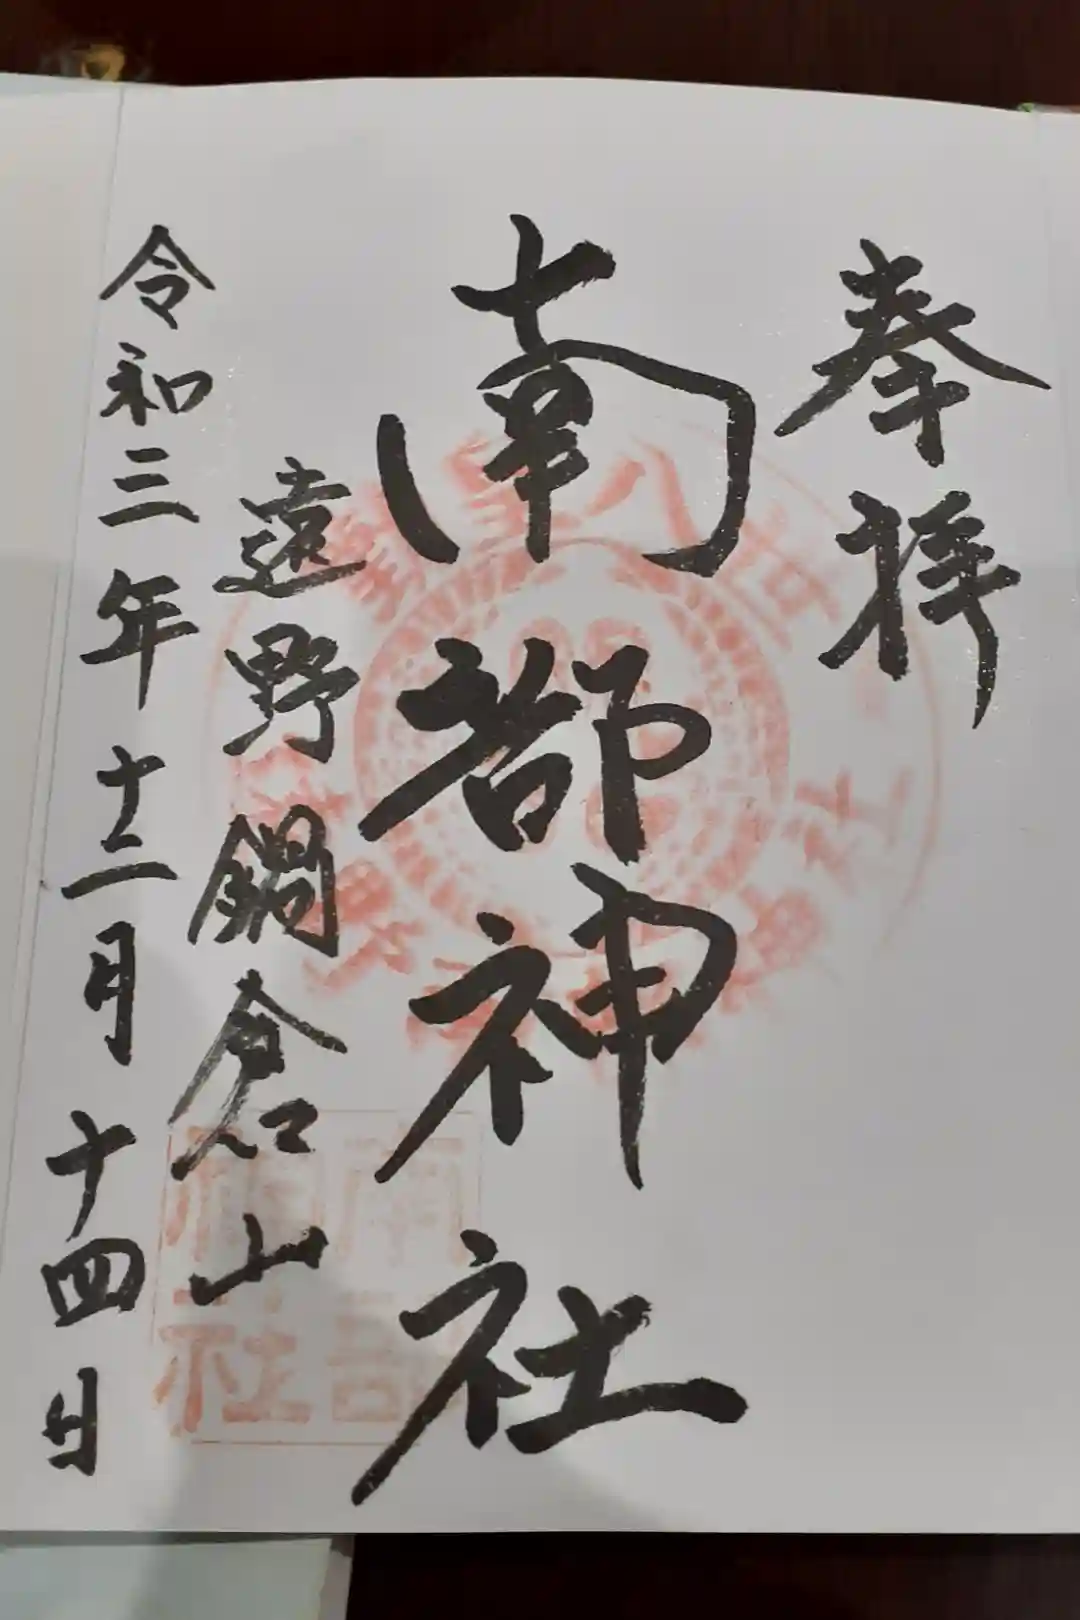 奉拝
南部神社
遠野鍋倉山
令和三年十二月十四日
南部
神社